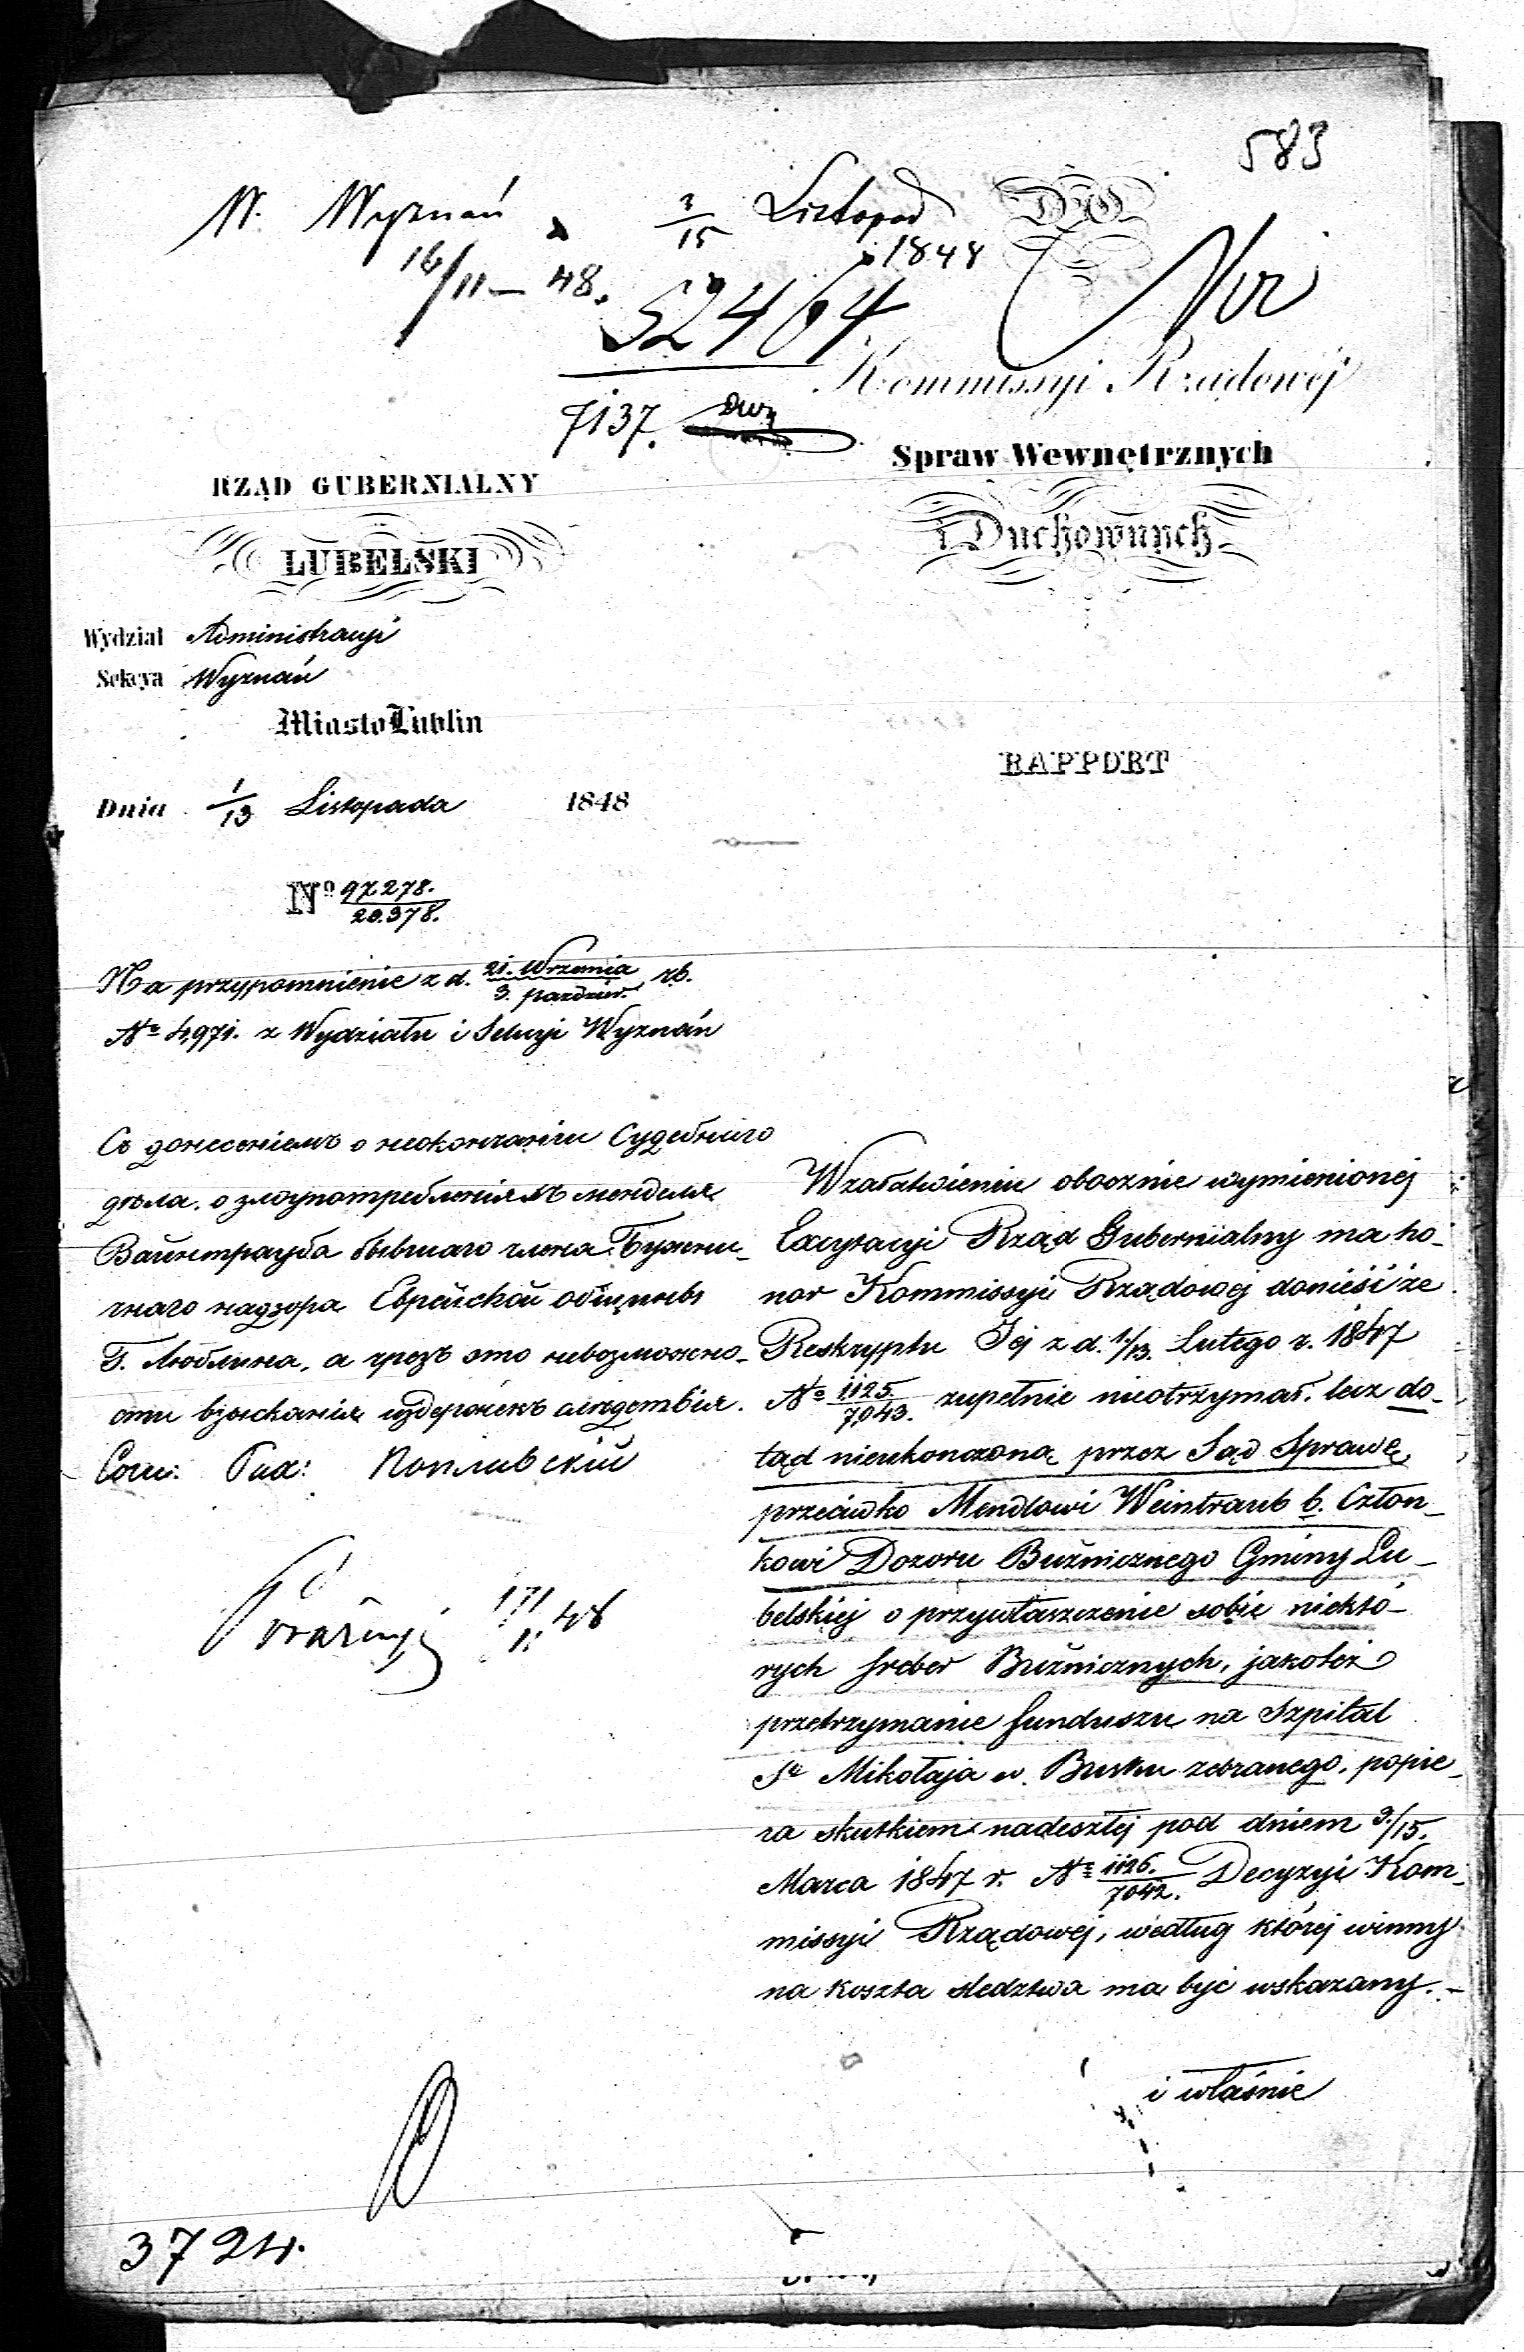 583
W. Wyznań
3/15 Listopad 1848
16/11 – 48.
52464
7137.
DO
Kommissyi Rządowéj
Spraw Wewnętrznych
i Duchownych
RZĄD GUBERNIALNY
LUBELSKI
Wydział Administracyi
Sekcya Wyznań
Miasto Lublin
Dnia 1/13 Listopada 1848
RAPPORT
Nº 97278./20.378.
Na przypomnienie z d. 21. Września/3. paździer. rb.
Nº 4,971. z Wydziału i Sekcyi Wyznań
Съ донесеніемъ о неокончаніи Судебнаго
дѣла о злоупотребленіямъ менделя
Вайнтрауба бывшаго члена Божни-
чнаго надзора Еврейской общины
Г. Люблина, а чрезъ это невозможно-
сти взысканія издержекъ слѣдствія.
17/11 48
Wzałatwieniu obocznie wymienionej
Excytacyi Rząd Gubernialny ma ho-
nor Kommissyi Rządowej donieść że
Reskryptu Jéj z d. 1/13. Lutego r. 1847
Nº 1125./7,043. zupełnie nieotrzymał. lecz do-
tąd nieukończoną przez Sąd Sprawę,
przeciwko Mendlowi Weintraub b. Człon-
kowi Dozoru Bużnicznego Gminy Lu-
belskiej o przywłaszczenie sobie niektó-
rych sreber Bużnicznych, jakoteż
przetrzymanie funduszu na Szpital
Sº Mikołaja w Busku zebranego, popie-
ra skutkiem nadeszłej pod dniem 3/15.
Marca 1847 r. Nº 1126./7042. Decyzyi Kom-
missyi Rządowej, według której winny
na koszta śledztwa ma być wskazany. –
i właśnie
3724.